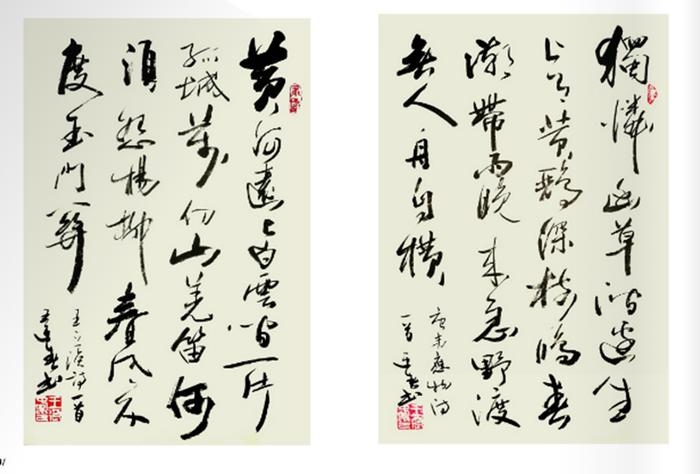 黄河遠上白雲間一片
孤城萬仞山羌笛何
須怨楊柳春風不
度玉門關
王之渙詩一首
書
獨憐幽草澗邊生
上有黄鸝深樹鳴春
潮帶雨晚來急野渡
無人舟自横
唐韋應物詩
一首
書